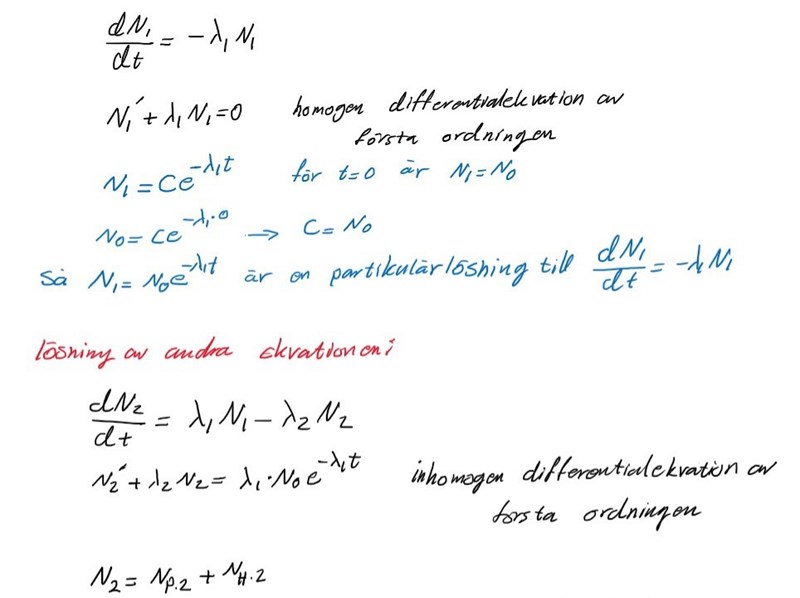 dN₁/dt = -λ₁N₁
N₁′ + λ₁N₁ = 0 homogen differentialekvation av
första ordningen
N₁ = Ce^(-λ₁t) för t=0 är N₁ = N₀
N₀ = Ce^(-λ₁·0) → C = N₀
så N₁ = N₀e^(-λ₁t) är en partikulärlösning till dN₁/dt = -λ₁N₁
lösning av andra ekvationen:
dN₂/dt = λ₁N₁ - λ₂N₂
N₂′ + λ₂N₂ = λ₁·N₀e^(-λ₁t) inhomogen differentialekvation av
första ordningen
N₂ = Np.₂ + NH.₂